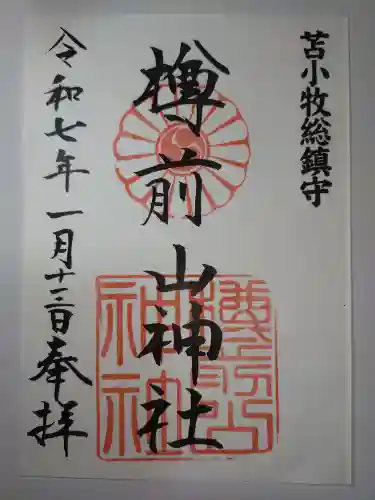 苫小牧総鎮守
樽前山神社
令和七年一月十二日奉拝
樽前山神社